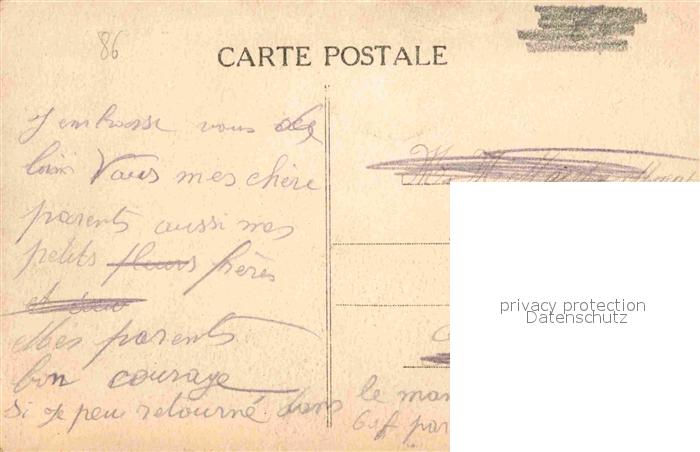 86
CARTE POSTALE
J embrasse vous de
loin Vous mes chère
parents aussi mes
petits fleurs frères
Mes parents
bon courage
si je peu retourné dans le
par
privacy protection
Datenschutz